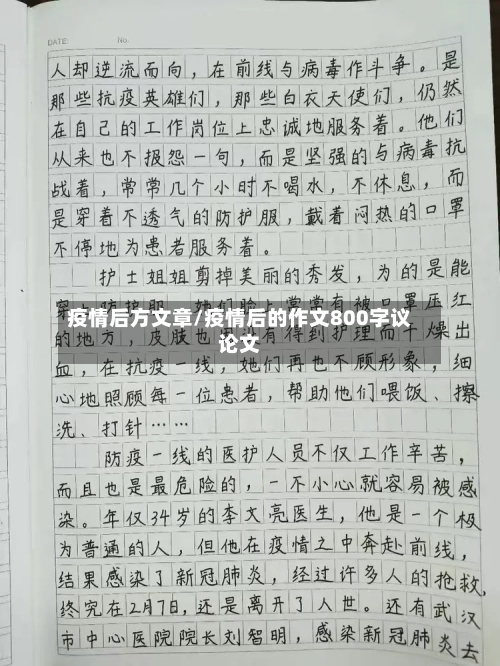 DATE No.
人却逆流而向，在前线与病毒作斗争。是
那些抗疫英雄们，那些白衣天使们，仍然
在自己的工作岗位上忠诚地服务着。他们
从来也不报怨一句，而是坚强的与病毒抗
战着，常常几个小时不喝水，不休息，而
是穿着不透气的防护服，戴着闷热的口罩
不停地为患者服务着。
护士姐姐剪掉美丽的秀发，为的是能
疫情后方文章/疫情后的作文800字议
论文
的地方，皮肤也
血，在抗疫一线，她们再也不顾形象，细
心地照顾每一位患者，帮助他们喂饭、擦
洗、打针……
防疫一线的医护人员不仅工作辛苦，
而且也是最危险的，一不小心就容易被感
染。年仅34岁的李文亮医生，他是一个极
为普通的人，但他在疫情之中奔赴前线，
结果感染了新冠肺炎，经过许多人的抢救，
终究在2月7日，还是离开了人世。还有武汉
市中心医院院长刘智明，感染新冠肺炎去